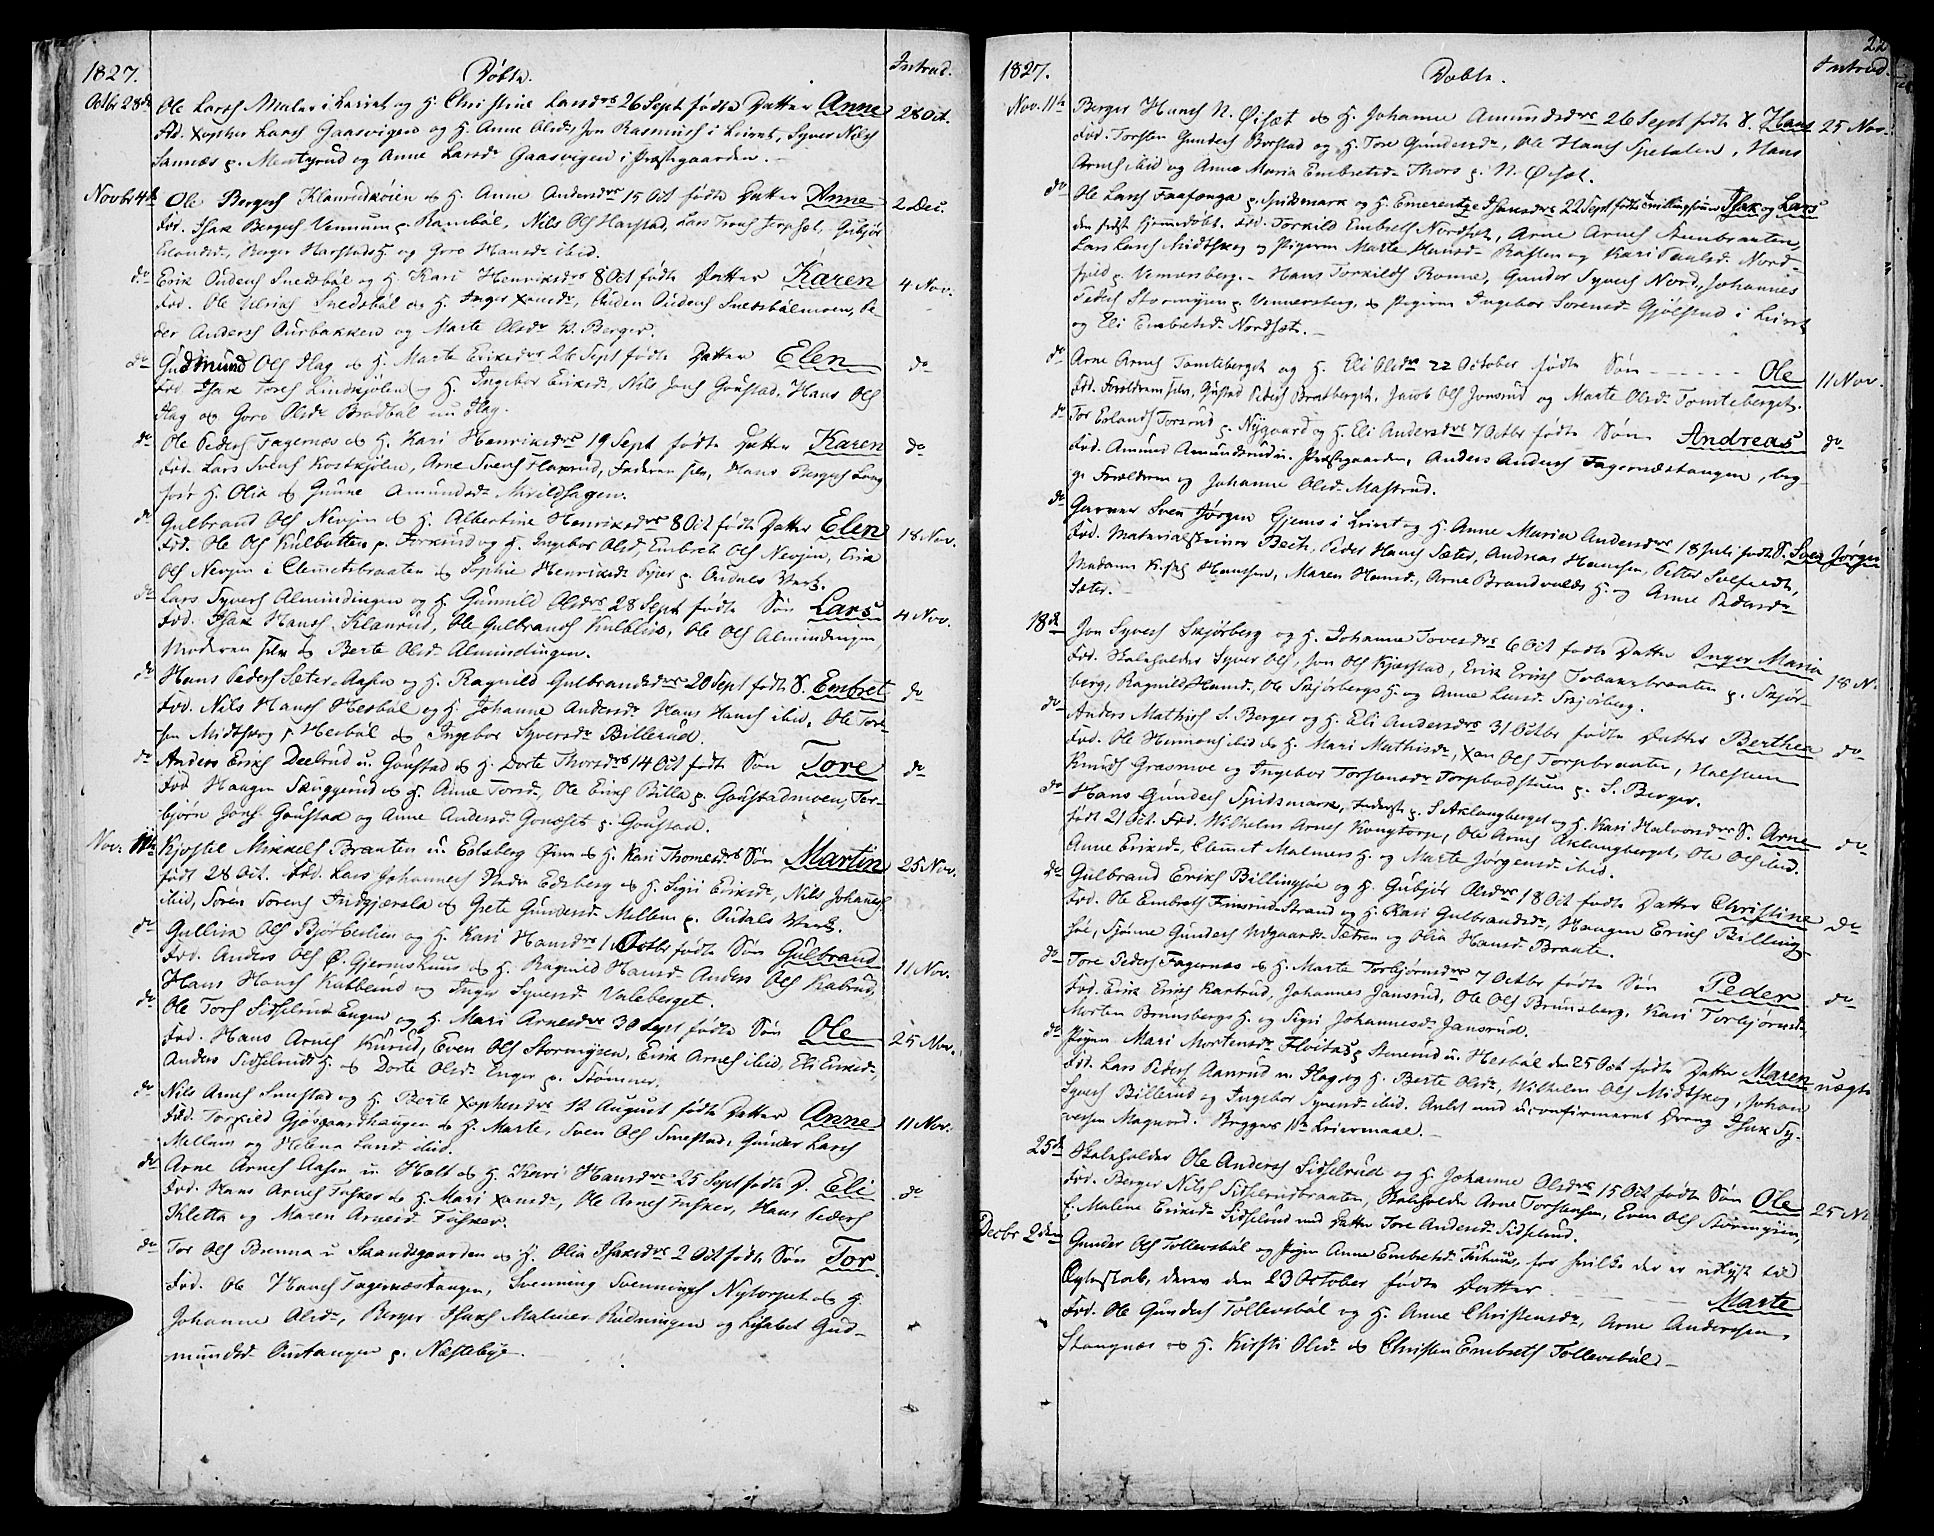 1827. Døbte. Introd.
Octbr 28de Ole Larss Maler i Leiret og H. Christine Larsdrs 26 Sept fødte Datter Anne 28 Oct.
Fad. Xopher Larss Gaasvigen og H. Anne Olsdr Jon Rasmuss i Leiret, Syver Nilss
Sannæs p. Mentzrud og Anne Larsdr Gaasvigen i Præstegaarden.
Novbr 4de Ole Bergers Klanridkøien & H. Anne Andersdrs 15 Oct fødte Datter Anne 2 Dec.
Fad. Isak Bergers Vennum p. Rambøl, Nils Ols Harstad, Lars Trons Jerpset, Gubjør
Erlandsdr, Berger Harstads H. og Goro Hansdr ibid.
do Erik Audens Snedsbøl og H. Kari Henriksdrs 8 Oct fødte Datter Karen 4 Nov.
Fad. Ole Ulriks Snedsbøl & H. Inger Xansdr, Auden Audens Snedsbølmoen, Pe-
der Anders Aurbakken og Marte Olsdr N. Berger.
do Gudmund Ols Hag & H. Marte Eriksdrs 26 Sept fødte Datter Elen do
Fad. Isak Tores Lindkjølen og H. Ingebor Eriksdr Nils Jons Goustad, Hans Ols
Hag og Goro Olsdr Brodbøl nu Hag.
do Ole Peders Fagernæs & H. Kari Henriksdrs 19 Sept fødte Datter Karen do
Fad. Lars Svens Kostkjølen, Arne Svens Flaxrud, Faderen selv, Hans Bergers Lang
H. Olia & Gunne Amundsdr Mrildhagen.
do Gulbrand Ols Nevjen & H. Albertine Henriksdrs 8 Oct fødte Datter Elen 18 Nov.
Fad. Ole Ols Kulbotten p. og H. Ingebor Olsdr, Embret Ols Nevjen, Erik
Ols Nevjen i Clemetsbraaten & Sophie Henriksdr p. Oudals Værk.
do Lars Syvers Almindingen og H. Gunnild Olsdrs 28 Sept fødte Søn Lars 4 Nov.
Fad. Isak Hans Klanrud, Ole Gulbrands Kulblik, Ole Ols Almindingen,
Moderen selv & Berte Olsdr Almindingen.
do Hans Peders Sæter-Aasen og H. Ragnild Gulbrandsdrs 20 Sept fødte S. Embret do
Fad. Nils Hans Hesbøl og H. Johanne Andersdr Hans Hans ibid, Ole Tore-
sen Midtskog p. Hesbøl & Ingebor Syversdr Billerud.
do Anders Eriks Deelrud u. Goustad & H. Dorte Thorsdrs 14 Oct fødte Søn Tore do
Fad. Haagen Skuggerud & H. Anne Torsdr, Ole Eriks Billa p. Goustadmoen, Tor-
bjørn Jons Goustad og Anne Andersdr Gonæset p. Goustad.
Nov. 11te Kjøstel Mikkels Braaten u. Edsberg Øvre & H. Kari Thomesdrs Søn Martin 25 Nov.
født 28 Oct. Fad. Lars Johanness Nedre Edsberg & H. Sigri Eriksdr, Nils Johanness
ibid, Søren Sørens Indgjærsla & Grete Gundersdr Mellem p. Oudals Værk.
do Gullik Ols Bjørberlien og H. Kari Hansdrs 1 Octbr fødte Søn Gulbrand 11 Nov.
Fad. Anders Ols Ø. Gjermshuus & H. Ragnild Hansdr Anders Ols Kabrud,
Hans Hans Kubberud og Inger Syversdr Valeberget.
do Ole Tors Sidselrud-Engen og H. Mari Arnesdrs 30 Sept fødte Søn Ole 25 Nov.
Fad. Hans Arnes Kurud, Even Ols Stormyren, Erik Arnes ibid, Eli Eriksdr,
Anders Sidselruds H. & Dorte Olsdr Enger p. Strømner.
do Nils Arnes Smestad og H. Berte Xophersdrs 12 August fødte Datter Anne 11 Nov.
Fad. Torkild Gjøsgaardhaugen & H. Marte, Sven Ols Smestad, Gunder Larss
Mellem og Helena Larsdr ibid.
do Arne Arnes Aasen u. Holt & H. Kari Hansdrs 25 Sept fødte D. Eli do
Fad. Hans Arnes Fosker & H. Mari Xansdr, Ole Arnes Fosker, Hans Peders
Kletta og Maren Arnesdr Fosker.
do Tor Ols Brenna u. Skandsgaarden & H. Olia Isaksdrs 2 Oct fødte Søn Tor.
Fad. Ole Hans Fagernæstangen, Svenning Svennings Nytorpet & H.
Johanne Olsdr, Berger Isaks Malmer-Rudningen og Lisabet Gud-
mundsdr Austangen p. Næstebye.
22
1827. Døbte. Introd.
Nov. 11te Berger Hans N. Øisæt & H. Johanne Amundsdrs 26 Sept fødte S. Hans 25 Nov.
Fad. Torsten Gunders Borstad og H. Tore Gundersdr, Ole Hans Spetalen, Hans
Arnes ibid og Anne Maria Embretsdr Thors p. N. Øisæt.
do Ole Larss Faafenga p. Spidsmark og H. Emerentze Isaksdrs 22 Sept fødte Tvillingsønner Isak og Lars
den første hjemmedøbt. Fad. Torkild Embrets Nordset, Arne Arnes Stenbraaten,
Lars Larss Midtskog og Pigerne Marte Hansdr Rasten og Kari Paulsdr Nord-
p. Vennersberg. - Hans Torkilds Romne, Gunder Syvers Nord, Johannes
Peders Stormyren p. Vennersberg, & Pigerne Ingebor Sorensdr Gjølstad i Leiret
og Eli Embretsdr Nordsæt.
do Arne Arnes Tomteberget og H. Eli Olsdrs 22 October fødte Søn Ole 11 Nov.
Fad. Forældrene selv, Gustad Peders Bratberget, Jacob Ols Jonsrud og Marte Olsdr Tomteberget.
do Tor Erlands Torsrud p. Nygaard og H. Eli Andersdrs 7 Octbr fødte Søn Andreas do
Fad. Amund Amundsrud u. Præstegaarden, Anders Anders Fagernæstangen, beg-
ge Forældrene og Johanne Olsdr Mastrud.
do Garver Sven Jørgen Gjems i Leiret og H. Anne Maria Andersdrs 18 Juli fødte S. Sven Jørgen
Fad. Materialskriver Bech, Peder Hans Sæter, Andreas Hanssen, Petter
Madame Hanssen, Maren Hansdr, Arne Brandvolds H. og Anne Pedersdr
Sæter.
18de Jon Syvers Skjørberg og H. Johanne Toresdrs 6 Oct fødte Datter Inger Maria 18 N.
Fad. Skoleholder Syver Ols, Jon Ols Kjærstad, Erik Eriks Tobaksbraaten p. Skjør-
berg, Ragnild Hansdr, Ole Skjørbergs H. og Anne Larsdr Skjørberg.
do Anders Mathiss S. Berger og H. Eli Andersdrs 31 Octbr fødte Datter Berthea do
Fad. Ole Heimons ibid & H. Mari Mathisdr, Xan Ols Torpbraaten, Halsten
Knuds Grasmoe og Ingebor Torstensdr Torpbadstuen p. S. Berger.
do Hans Gunders Spidsmark, Inderst p. S Aklangberget og H. Kari Halvorsdrs S. Arne do
født 21 Oct. Fad. Wilhelm Arnes Kongtorp, Ole Arnes Aklangberget, Ole Ols ibid.
Anne Eriksdr, Clemet Malmers H. og Marte Jørgensdr ibid.
do Gulbrand Eriks Billingsjøe og H. Gubjør Olsdrs 18 Oct fødte Datter Christine do
Fad. Ole Embrets Finsrud-Strand og H. Kari Gulbrandsdr, Haagen Eriks Billing-
søe, Gunders Udgaards-Tetren og Olia Hansdr Braate.
do Tore Peders Fagernæs & H. Marte Torbjørnsdrs 7 Octbr fødte Søn Peder do
Fad. Erik Eriks Kartrud, Johannes Jansrud, Ole Ols Brunsberg, Kari Torbjørnsdr
Morten Brunsbergs H. og Sigri Johannesdr Jansrud.
do Pigen Mari Mortensdr Floitad p. Stenerud u. Hesbøl den 25 Oct fødte Datter Maren uægte
Fad. Lars Peders Aanrud u. Hag og H. Berte Olsdr, Wilhelm Ols Midtskog, Johan
Syvers Billerud og Ingebor Syversdr ibid. Anlst med uconfirmeret Dreng Isak Sy-
versen Magnord. Begges 1ste Leiermaal.
25de Skoleholder Ole Anders Sidselrud og H. Johanne Olsdrs 15 Oct fødte Søn Ole 25 N.
Fad. Berger Nilss Sidselrudbraaten, Skoleholder Arne Torstensen, Even Ols Stormyren,
E. Malene Eriksdr Sidselrud med Datter Tore Andersdr Sidselrud.
Decbr 2den Gunder Ols Tollevsbøl og Pigen Anne Embretsdr Foskuus, for hvilke der er udlyst til
Ægteskab, derav den 23 October fødte Datter Marte
Fad. Ole Gunders Tollevsbøl og H. Anne Christensdr, Arne Anderssen,
Stangnæs & H. Kirsti Olsdr & Christen Embrets Tollevsbøl.